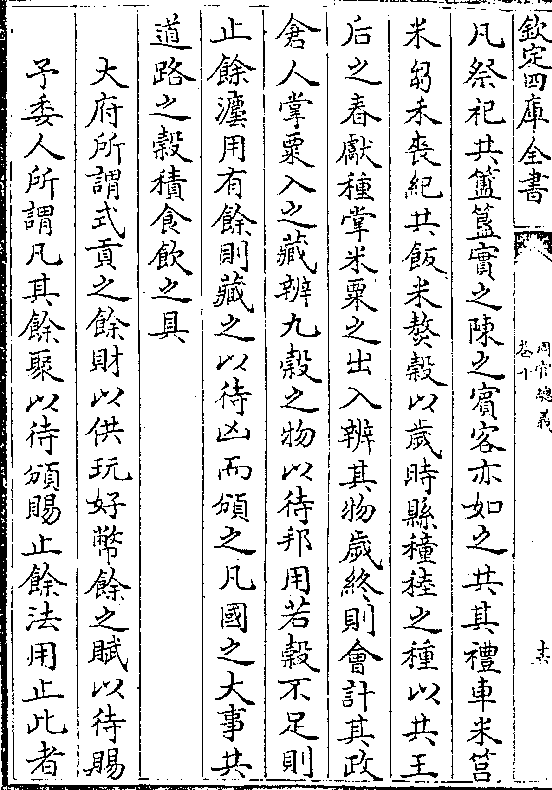 欽定四庫全書
周官總義
卷十
十六
凡祭祀共簠簋實之陳之賓客亦如之共其禮車米筥
米芻禾喪紀共飯米熬榖以嵗時縣穜稑之種以共王
后之春獻種掌米粟之出入辨其物嵗終則會計其政
倉人掌粟入之藏辨九榖之物以待邦用若榖不足則
止餘灋用有餘則藏之以待凶而頒之凡國之大事共
道路之榖積食飲之具
大府所謂式貢之餘財以供玩好幣餘之賦以待賜
予委人所謂凡其餘聚以待頒賜止餘法用止此者